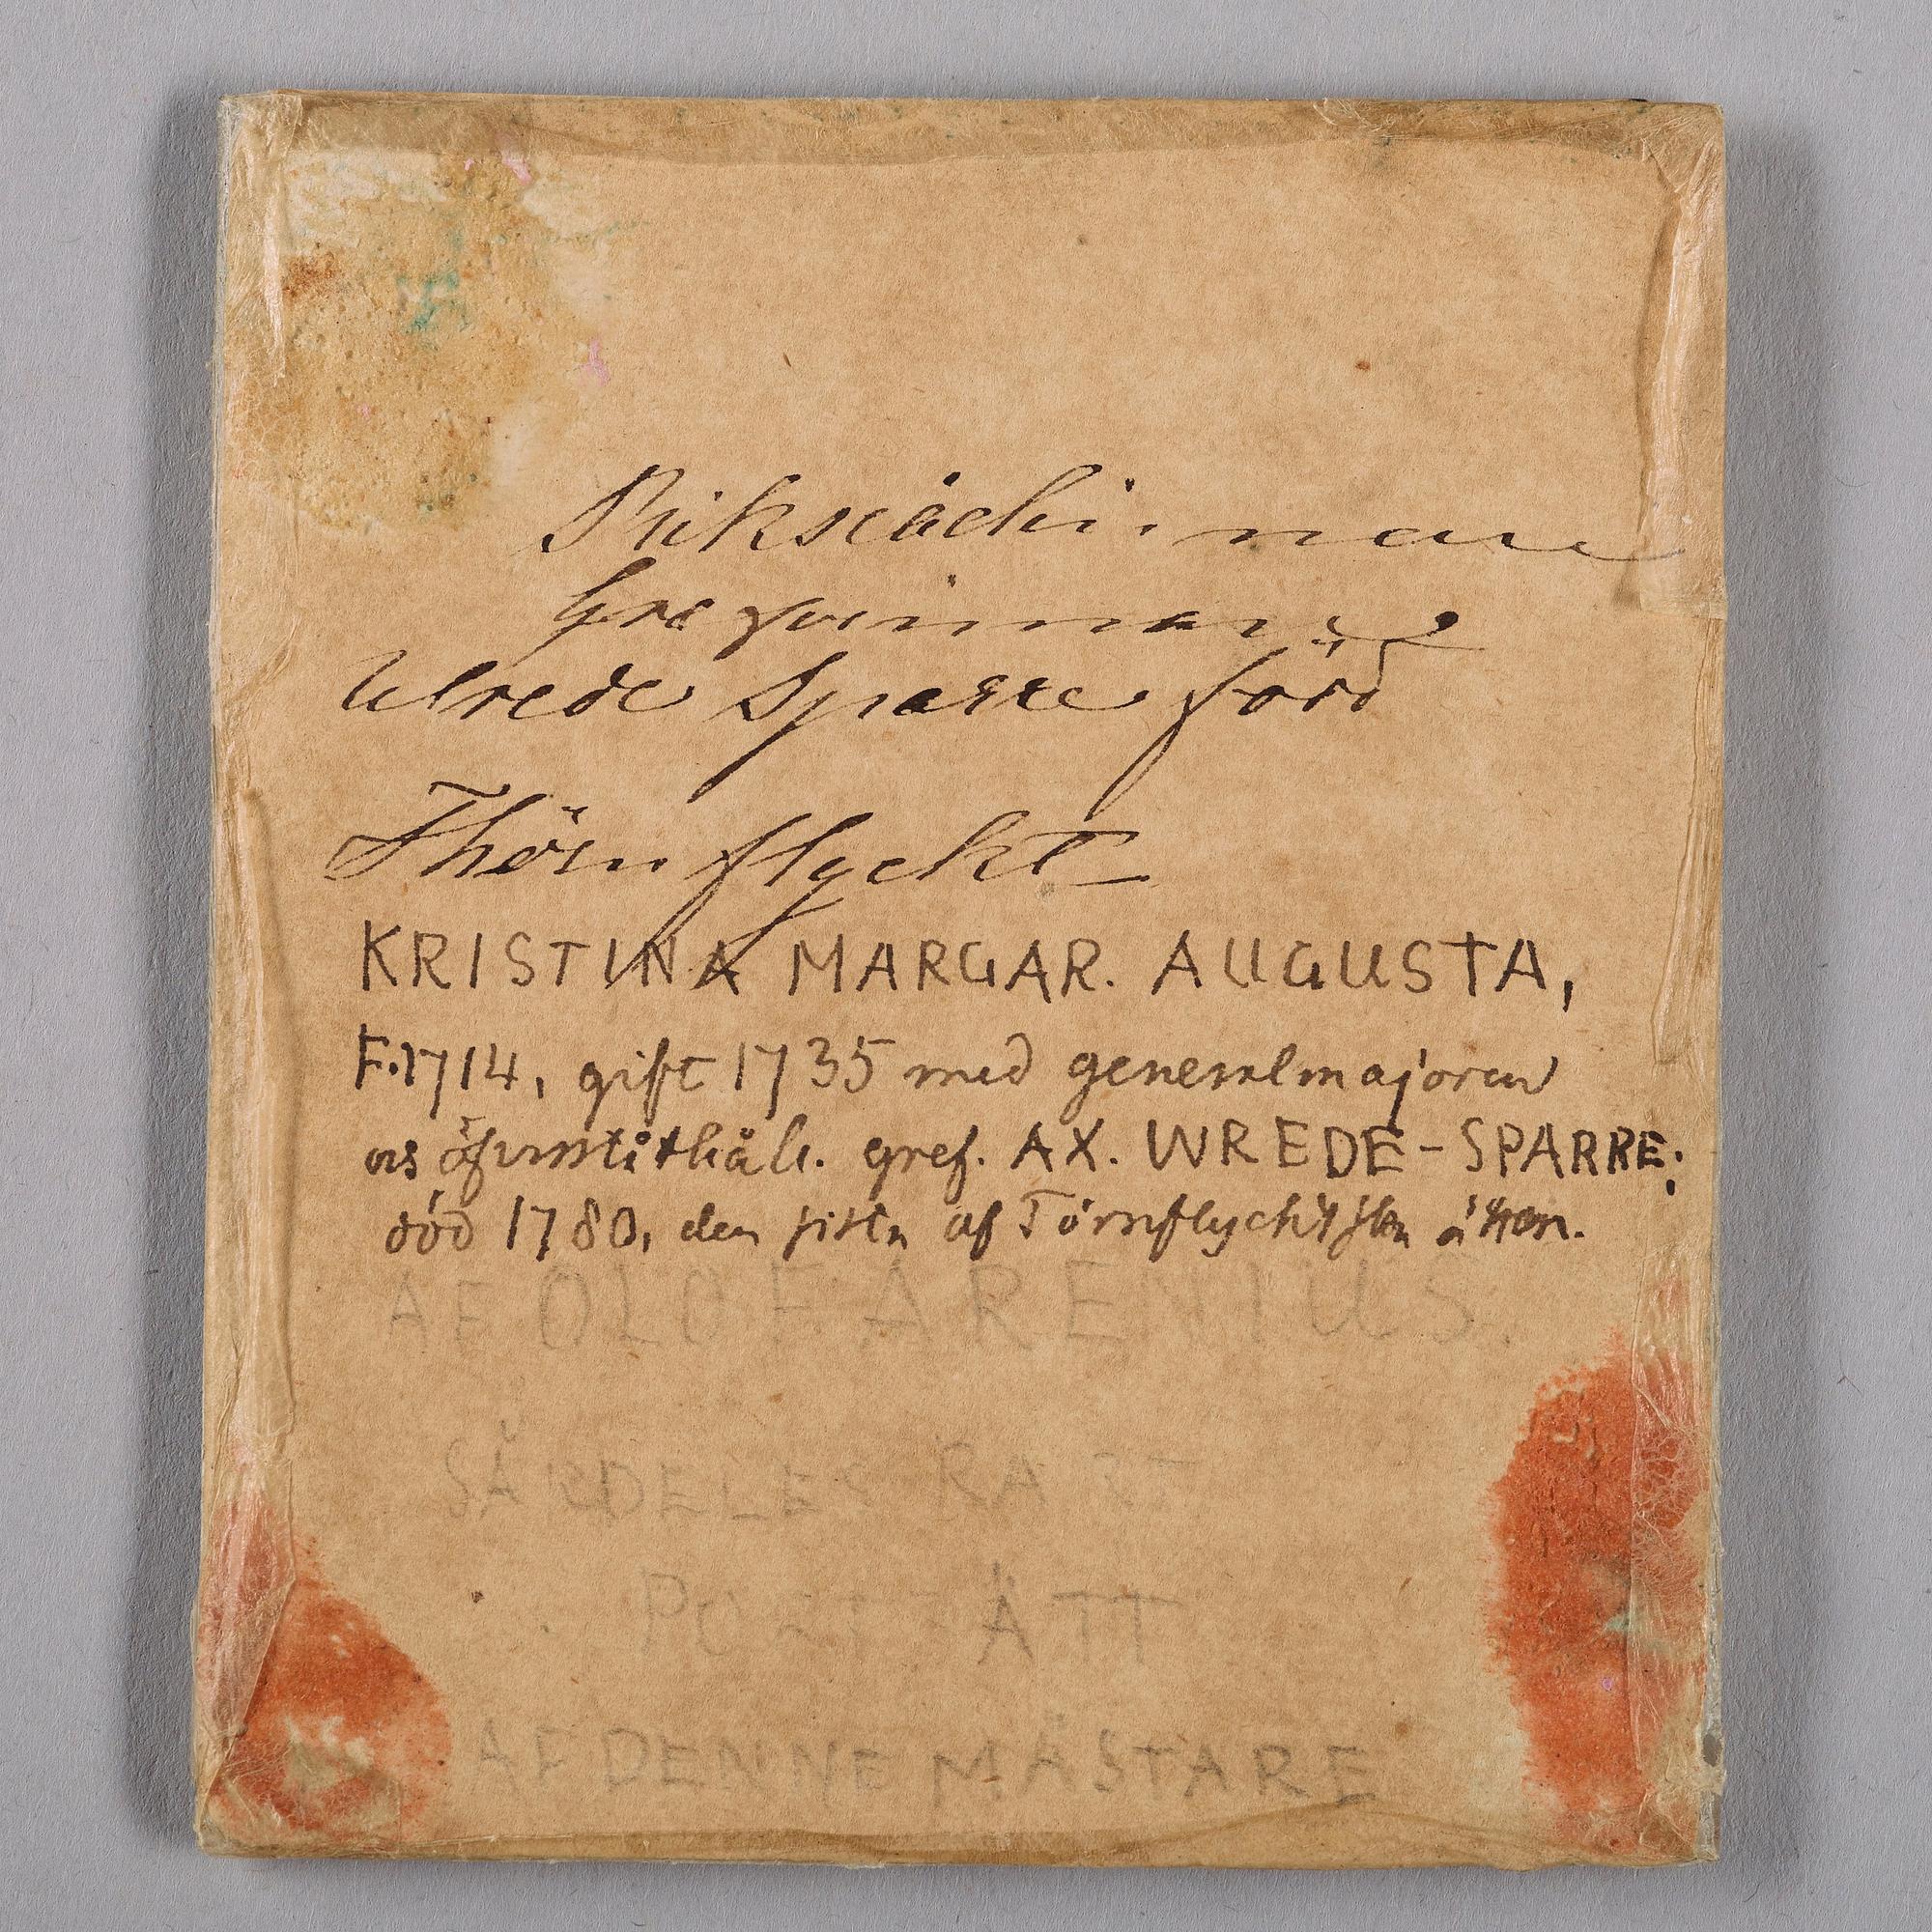 Riksrådinnan
Grefvinnan
Wrede Sparre född
Thörnflyckt
KRISTINA MARGAR. AUGUSTA,
F. 1714, gift 1735 med generalmajoren
os öfverståthåll. gref. AX. WREDE-SPARRE;
död 1780, den sista af Törnflychtska ätten.
AF OLOF ARENIUS
SÄRDELES RART
PORTRÄTT
AF DENNE MÄSTARE